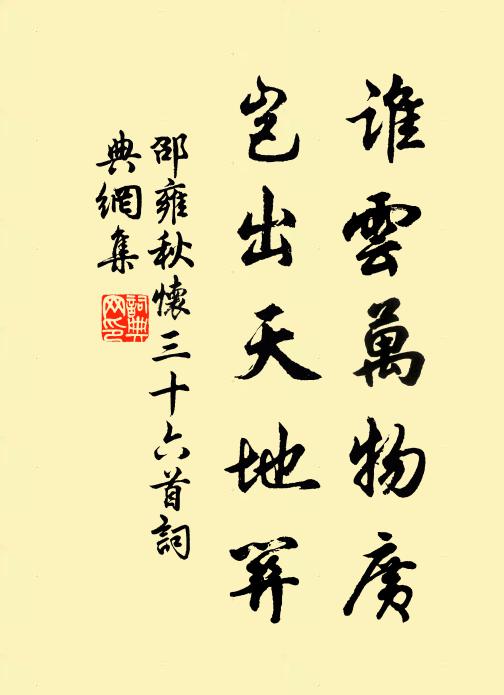 誰雲萬物廣
豈出天地羿
邵雍秋懷三十六首詞
典網集
詞典
网印